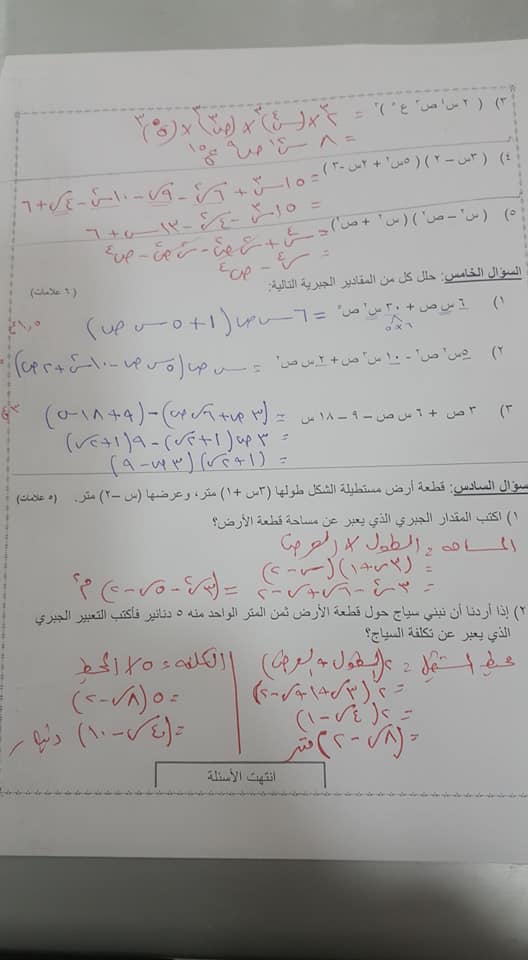 ٣) ( ٢ س٤ ص٣ ع٥ )٣ = ٢٣ × (س٤)٣ × (ص٣)٣ × (ع٥)٣
= ٨ س١٢ ص٩ ع١٥
٤) ( ٣س – ٢ ) ( ٥س٢ + ٢س – ٣ ) = ١٥س٣ + ٦س٢ – ٩س – ١٠س٢ – ٤س + ٦
= ١٥س٣ – ٤س٢ – ١٣س + ٦
٥) ( س٢ – ص٢ ) ( س٢ + ص٢ ) = س٤ + س٢ص٢ – س٢ص٢ – ص٤
= س٤ – ص٤
السؤال الخامس: حلل كل من المقادير الجبرية التالية: (٦ علامات)
١) ٦ س ص + ٣٠ س٢ ص٢ = ٦ س ص (١ + ٥ س ص)
٦×٥
٢) ٥س٢ ص٢ - ١٠ س٣ ص + ٢ س ص٢ = س ص (٥ س ص – ١٠ س٢ + ٢ ص)
٣) ٣ ص + ٦ س ص – ٩ – ١٨ س = (٣ ص + ٦ س ص) – (٩ + ١٨ س)
= ٣ ص (١ + ٢س) – ٩ (١ + ٢س)
= (١ + ٢س) (٣ ص – ٩)
السؤال السادس: قطعة أرض مستطيلة الشكل طولها (٣س + ١) متر، وعرضها (س – ٢) متر. (٥ علامات)
١) اكتب المقدار الجبري الذي يعبر عن مساحة قطعة الأرض؟
المساحة = الطول × العرض
= (٣س + ١) (س – ٢)
= ٣س٢ – ٦س + س – ٢ = (٣س٢ – ٥س – ٢) م٢
٢) إذا أردنا أن نبني سياج حول قطعة الأرض ثمن المتر الواحد منه ٥ دنانير فأكتب التعبير الجبري
الذي يعبر عن تكلفة السياج؟
محيط المستطيل = ٢ (الطول + العرض)
= ٢ (٣س + ١ + س – ٢)
= ٢ (٤س – ١)
= (٨س – ٢) متر
التكلفة = ٥ × المحيط
= ٥ (٨س – ٢)
= (٤٠س – ١٠) دينار
انتهت الأسئلة